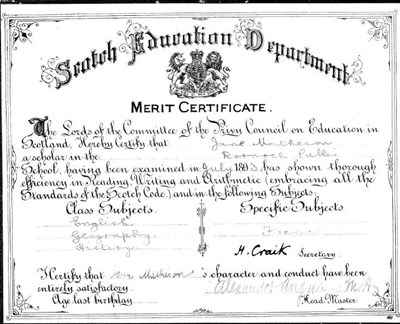 Scotch Education Department
MERIT CERTIFICATE.
The Lords of the Committee of the Privy Council on Education in
Scotland, Hereby Certify that Jane Matheson
a scholar in the Dornoch Public
School, having been examined in July 1893 has shown thorough
efficiency in Reading, Writing and Arithmetic (embracing all the
Standards of the Scotch Code) and in the following Subjects.
Class Subjects. Specific Subjects
English
Geography French
History
H. Craik Secretary.
I Certify that Matheson 's character and conduct have been
entirely satisfactory. Alexander M.A.
Age last birthday Head Master